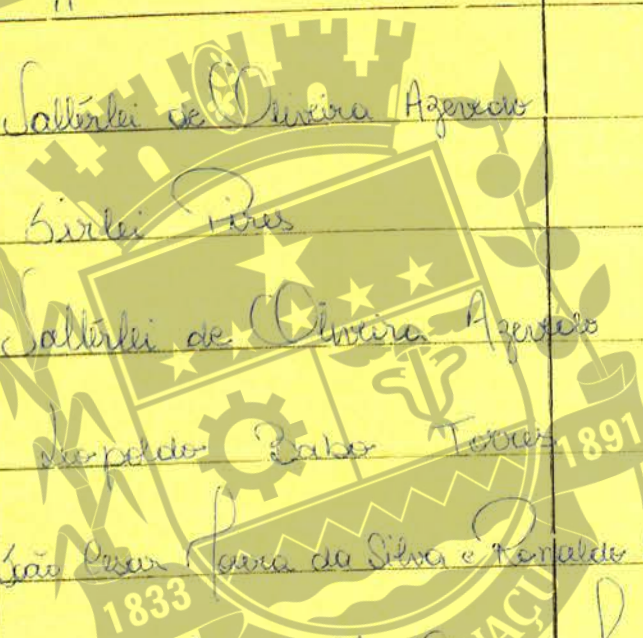 Salténlei de Oliveira Azevedo
Sirlei Pires
Salténlei de Oliveira Azevedo
Leopoldo Babo Torres
1891
João Cesar Moura da Silva e Ronaldo
1833